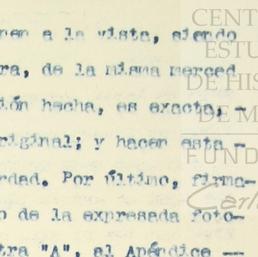 nen a la vista, siendo
ra, de la misma merced
ión hecha, es exacta, -
riginal; y hacen esta -
rdad. Por último, firma-
o de la expresada foto-
tra "A", al Apéndice --
CENT
ESTU
DE HIS
DE M
FUND
Carl